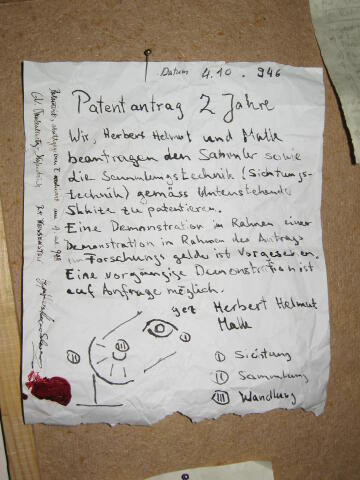 Datum 4.10. 946
Patentantrag 2 Jahre
Wir, Herbert Helmut und Malle
beantragen den Sammler sowie
die Sammlungstechnik (Sichtungs-
technik) gemäss Untenstehende
Skizze zu patentieren.
Eine Demonstration im Rahmen einer
Demonstration im Rahmen des Antrags
Forschungs gelder ist Vorgesehen.
Eine vorgängige Demonstration ist
auf Anfrage möglich.
gez Herbert Helmut
Malle
I Sichtung
II Sammlung
III Wandlung